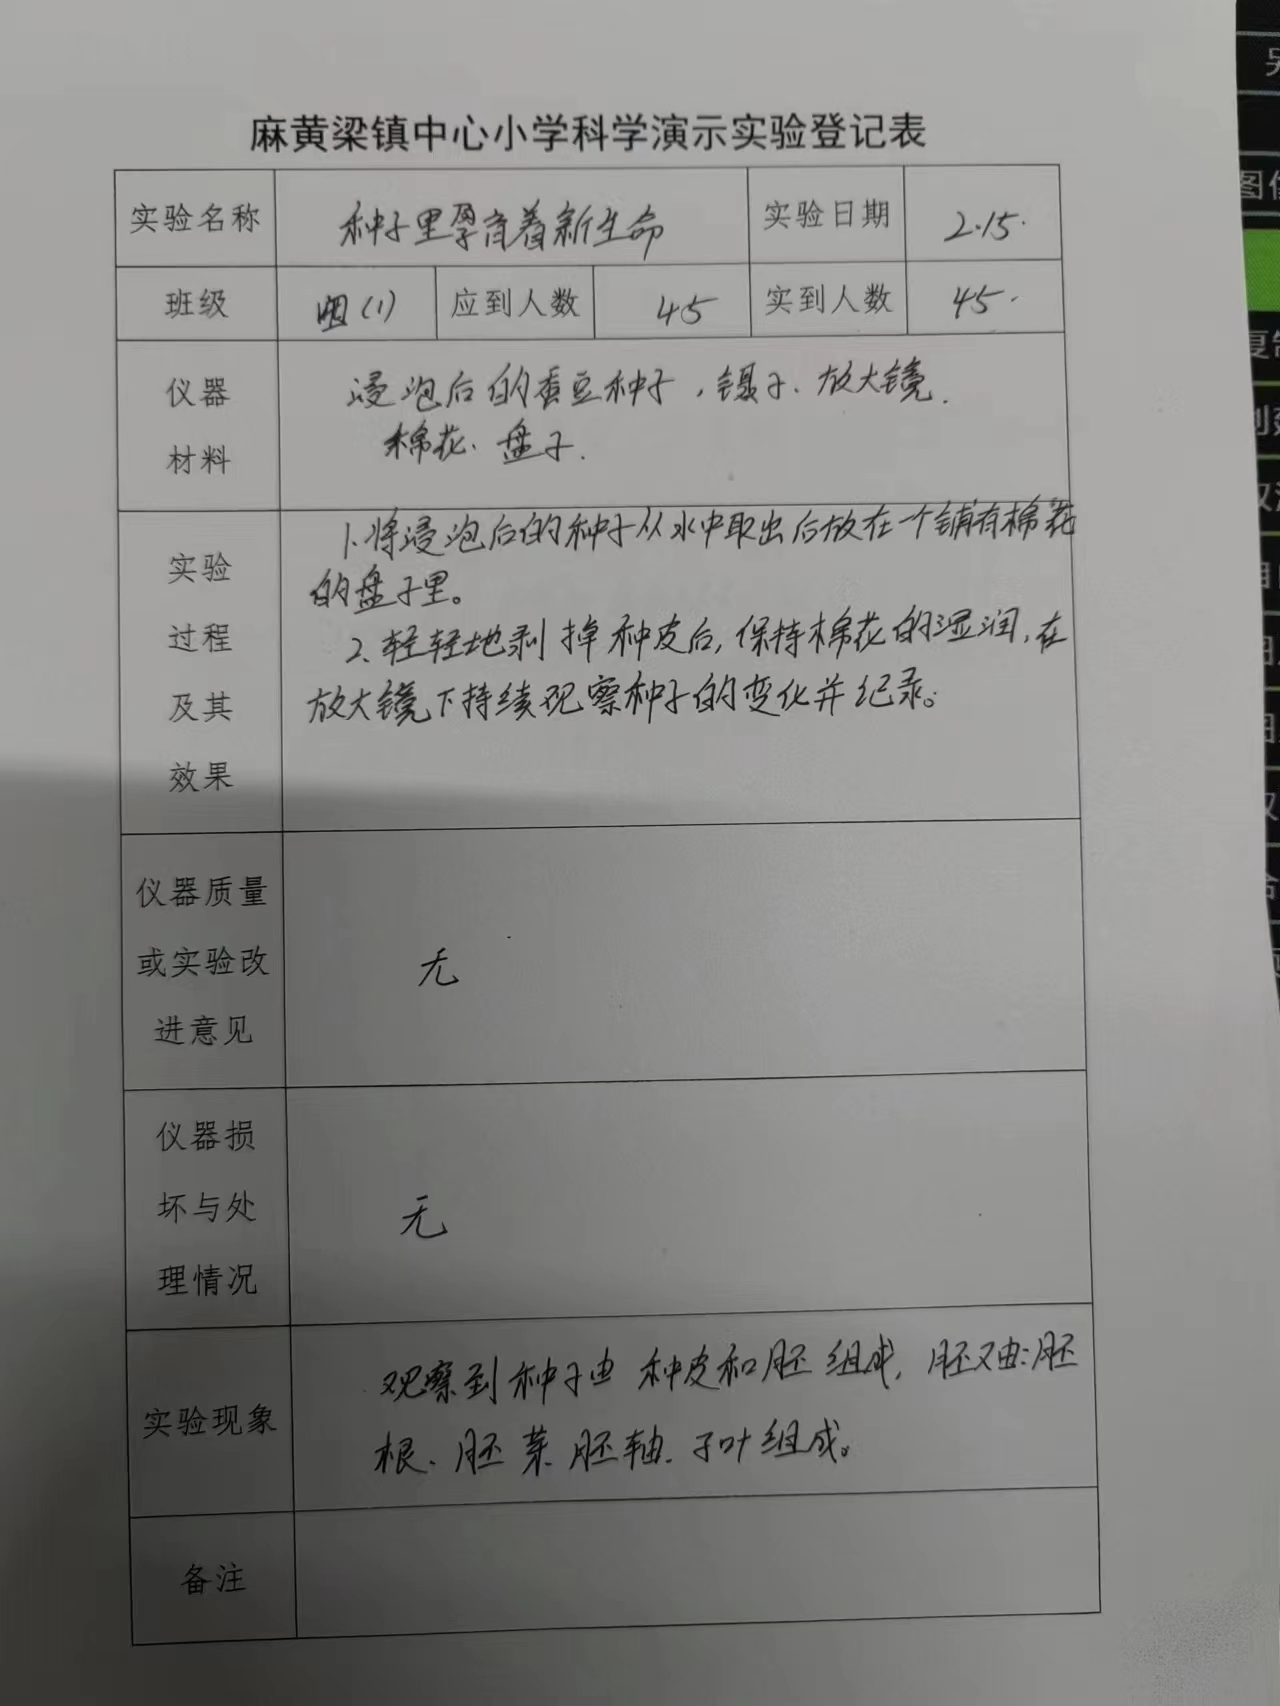 麻黄梁镇中心小学科学演示实验登记表
实验名称 种子里孕育着新生命 实验日期 2.15.
班级 四(1) 应到人数 45 实到人数 45.
仪器
材料
浸泡后的蚕豆种子,镊子、放大镜.
棉花、盘子.
实验
过程
及其
效果
1.将浸泡后的种子从水中取出后放在一个铺有棉花
的盘子里。
2、轻轻地剥掉种皮后,保持棉花的湿润,在
放大镜下持续观察种子的变化并纪录。
仪器质量
或实验改
进意见
无
仪器损
坏与处
理情况
无
实验现象
观察到种子由种皮和胚组成,胚又由:胚
根、胚芽、胚轴、子叶组成。
备注